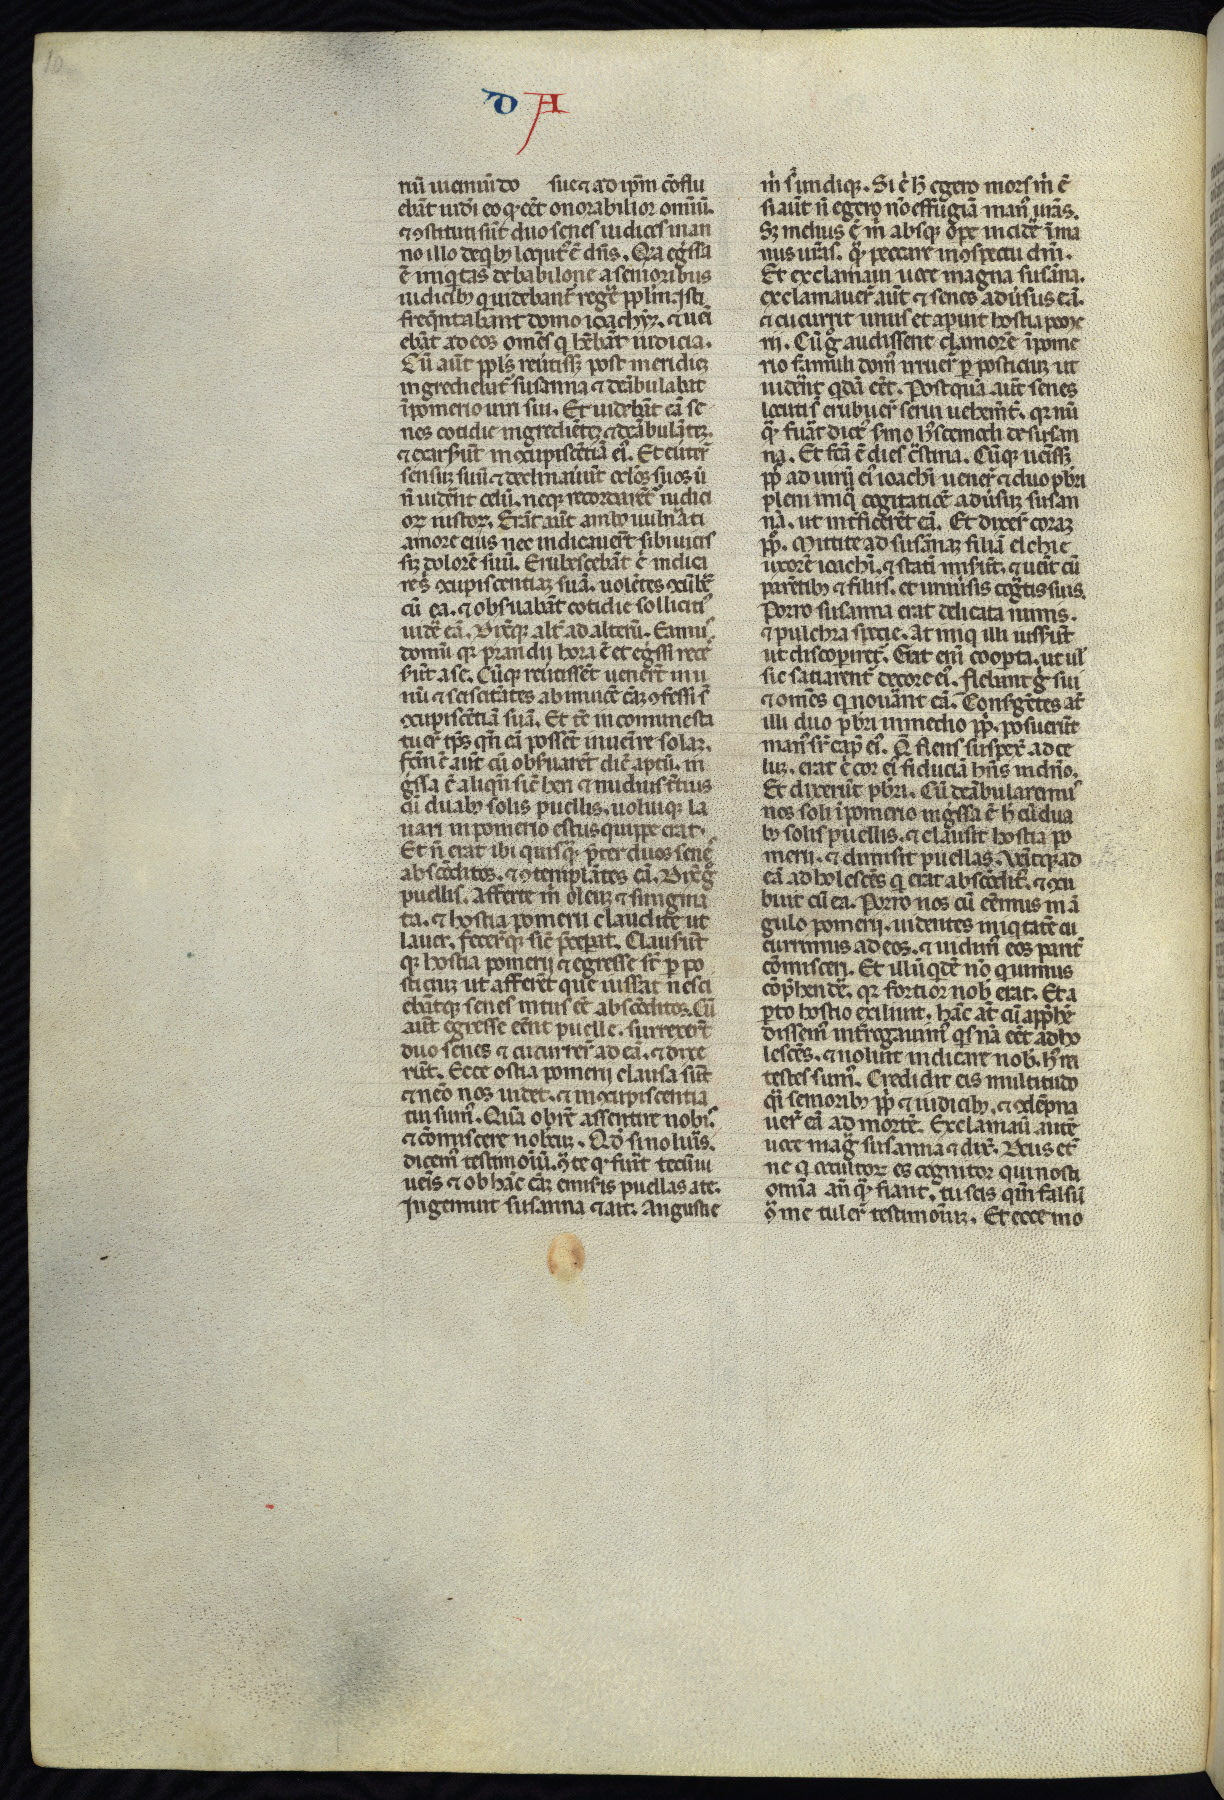 D A
nũ uicinũ do sue ⁊ ad ip̃m cõflu
ebãt iudei eo q̛ eẽt onorabilior omiũ.
⁊ ↄstituti sũt duo senes iudices in an
no illo de qib; locut᷒ ẽ dñs. Q̃a eg̃ssa
ẽ iniq̛tas de babilone a senioribus
iudicib; qui uidebant᷒ regẽ pp̃lm. Isti
freq̃ntabant domũ ioachỹ. ⁊ ueĩ
ebãt ad eos om̃s q̛ hẽbãt iudicia.
Cũ aũt pp̃ls reũtiss; post meridiẽ
ingrediebat᷒ susanna ⁊ deãbulabat
ĩ pomerio uiri sui. Et uidebãt eã se
nes cotidie ingrediẽtẽ ⁊ deãbulãtẽ.
⁊ exarsẽũt in ↄcupiscẽtiã ei᷒. Et euter̃t
sensuz suũ ⁊ declinauũt oc̃los suos ũ
ñ uidẽnt celũ. neq; recordarent᷒ iudici
or̃ iustor̃. Erãt aũt ambo uuln̾ati
amore eius nec indicauer̃t sibi uicis
si; dolorẽ suũ. Erubescebãt ẽ indica
re s̾ ↄcupiscentiaz suã. uolẽtes ↄcũbẽ
cũ ea. ⁊ obs̾uabãt cotidie solliciti᷒
uidẽ eã. Dixitq; alt᷒ ad alterũ. Eamu᷒
domũ q̛ prandij hora ẽ et eg̃ssi rece
s̾ũt a se. Cũq; reũtissẽt uener̃t in u
nũ ⁊ sciscitãtes ab inuicẽ cãz ↄfessi s̃
ↄcupiscẽtiã suã. Et tẽ in comune sta
tuer̃ tp̃s qñ eã possẽt inuenire solaz.
fc̃m ẽ aũt cũ obs̾uarẽt diẽ aptũ. in
g̃ssa ẽ aliqñ sic̃ heri ⁊ nudiusterius
cũ duab; solis puellis. uoluitq; la
uari in pomerio estus quippe erat.
Et ñ erat ibi quisq̃. p̃ter duos senes
abscõditos. ⁊ ↄtemplãtes eã. Dixit g̃
puellis. Afferte m̃ oleuz ⁊ smigma
ta. ⁊ hostia pomerii claudite ut
lauer. fecer̃tq; sic̃ p̃cep̾at. Claus̾ũt
q; hostia pomerij ⁊ egresse st̃ p̱ po
sticiuz ut affer̃ẽt que iuss̾at nesci
ebãtq; senes intus eẽ abscõditos. Cũ
aũt egresse eẽnt puelle. surrexer̃t
duo senes ⁊ cucurrer̃ ad eã. ⁊ dixe
rũt. Ecce ostia pomerij clausa sũt
⁊ nẽo nos uidet. ⁊ in ↄcupiscentia
tui sum᷒. Quã ob rẽ assentire nobis.
⁊ cõmiscere nobiscũ. Qð si nolu̾is.
dicem᷒ testimoniũ. ↄ̃ te q̛ fu̾it tecũ iu
uenis ⁊ ob hãc cãz emis̾is puellas a te.
Ingemuit susanna ⁊ ait. Angustie
m̃ s̃ undiq;. Si ẽ h̾ egero mors m̃ ẽ
si aũt ñ egero nõ effugiã man᷒ ur̃as.
Sz melius ẽ m̃ absq; op̾e incidẽ ĩ ma
nus ur̃as. q̃ peccare in ↄspectu dñi.
Et exclamauit uoce magna susãna.
exclamauer̃ aũt ⁊ senes adũsus eã.
⁊ cucurrit unus et ap̾uit hostia pome
rij. Cũ g̃ audissent clamorẽ ĩ pome
rio famuli dom᷒ irruer̃ p̱ posticiuz ut
uidẽnt q̛dnã eẽt. Postquã aũt senes
locuti s̃ erubuer̃ serui uehemẽt̃. q; nũ
q̃ fu̾at dict᷒ s̾mo h᷒cemodi de susan
na. Et fc̃a ẽ dies c̾stina. Cũq; uẽiss;
pp̃ ad uirũ ei᷒ ioachĩ uener̃ ⁊ duo pb̾ri
pleni iniq̃ cogitatiõe adũsuz susan
nã. ut int̾ficerẽt eã. Et dixer̃ coraz
pp̃. Mittite ad susãnaz filiã elchie
uxorẽ ioachĩ. ⁊ statĩ mis̾ũt. ⁊ ueĩt cũ
parẽtib; ⁊ filiis. et uniũsis cog̃tis suis.
Porro susanna erat delicata nimis.
⁊ pulchra specie. At iniq̛ illi iuss̾ũt
ut discop̱iret᷒. Erat eñi coop̱ta. ut ul̾
sic satiarent᷒ decore ei᷒. flebunt g̃ sui
⁊ om̃s q̛ nou̾ant eã. Consurgẽtes at̾
illi duo pb̾ri in medio pp̃. posuerũt
man᷒ sr̃ cap᷒ ei᷒. Q̃ flens suspex̾ ad ce
luz. erat ẽ cor ei᷒ fiduciã hñs in dño.
Et dixerũt pb̾ri. Cũ deãbularemu᷒
nos soli ĩ pomerio ing̃ssa ẽ h̾ cũ dua
b; solis puellis. ⁊ clausit hostia po
merij. ⁊ dimisit puellas. Uẽitq; ad
eã adholescẽs q̛ erat abscõdit᷒. ⁊ ↄcu
buit cũ ea. Porro nos cũ eẽmus in ã
gulo pomerij. uidentes iniq̛tatẽ cu
currimus ad eos. ⁊ uidim᷒ eos parit̾
cõmisceri. Et illũ q̛dẽ nõ quimus
cõp̃hendẽ. q; fortior nob᷒ erat. Et a
p̱to hostio exiliuit. hãc at̾ cũ app̃hẽ
dissem᷒ int̾rogauim᷒ q̛s nã eẽt adho
lescẽs. ⁊ noluit indicare nob᷒. h᷒ rei
testes sum᷒. Credidit eis multitudo
q̃i seniorib; pp̃ ⁊ iudicib;. ⁊ ↄdẽpna
uer̃ eã ad mortẽ. Exclamauĩ autẽ
uoce mag̃ susanna ⁊ dix̾. Deus et᷒
ne q̛ ocultor̃ es cognitor qui nosti
omĩa añ q̃ fiant. tu scis qm̃ falsũ
ↄ̃ me tuler̃ testimoniuz. Et ecce mo